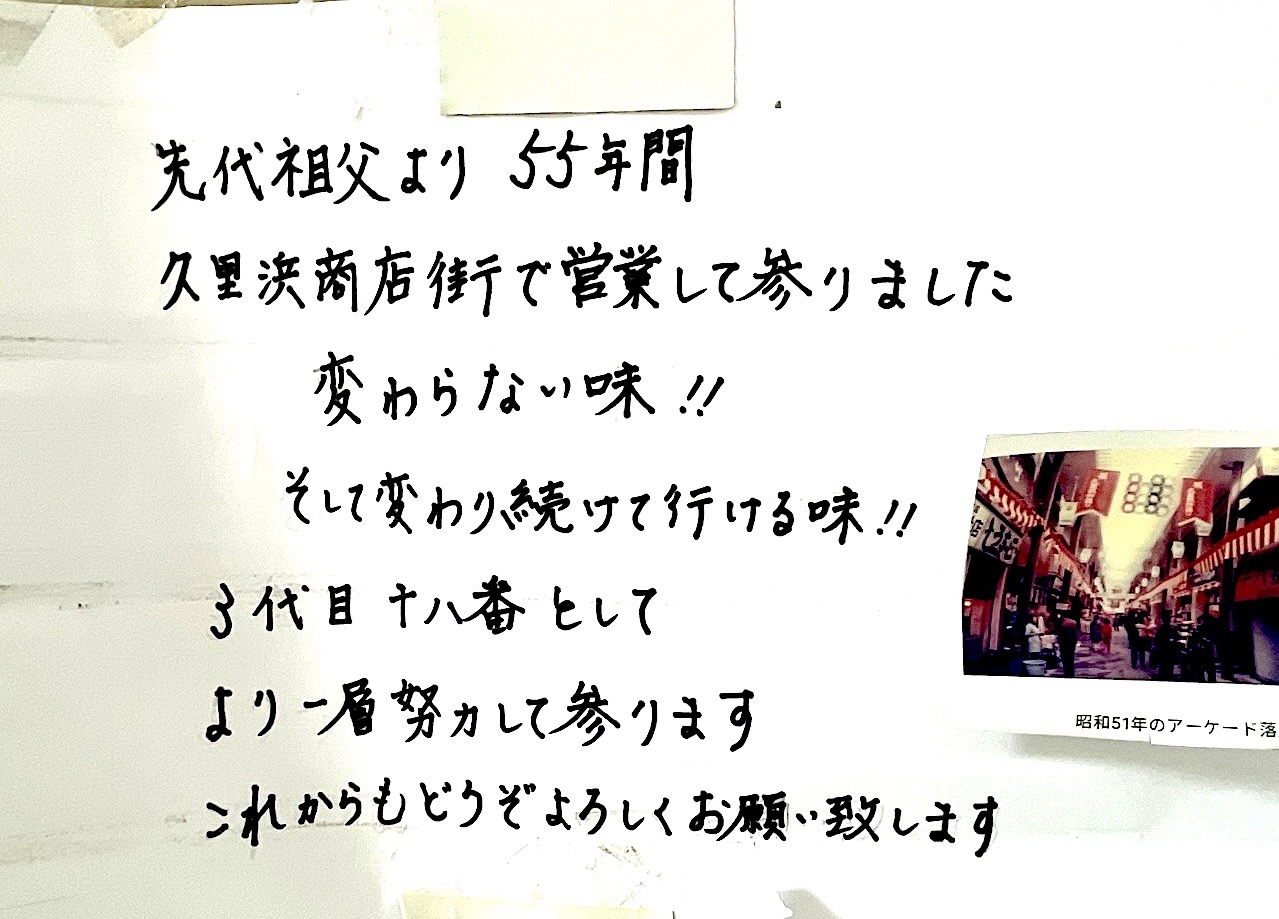 先代祖父より 55年間
久里浜商店街で営業して参りました
変わらない味!!
そして変わり続けて行ける味!!
3代目 十八番 として
より一層努力して参ります
これからもどうぞよろしくお願い致します
昭和51年のアーケード落